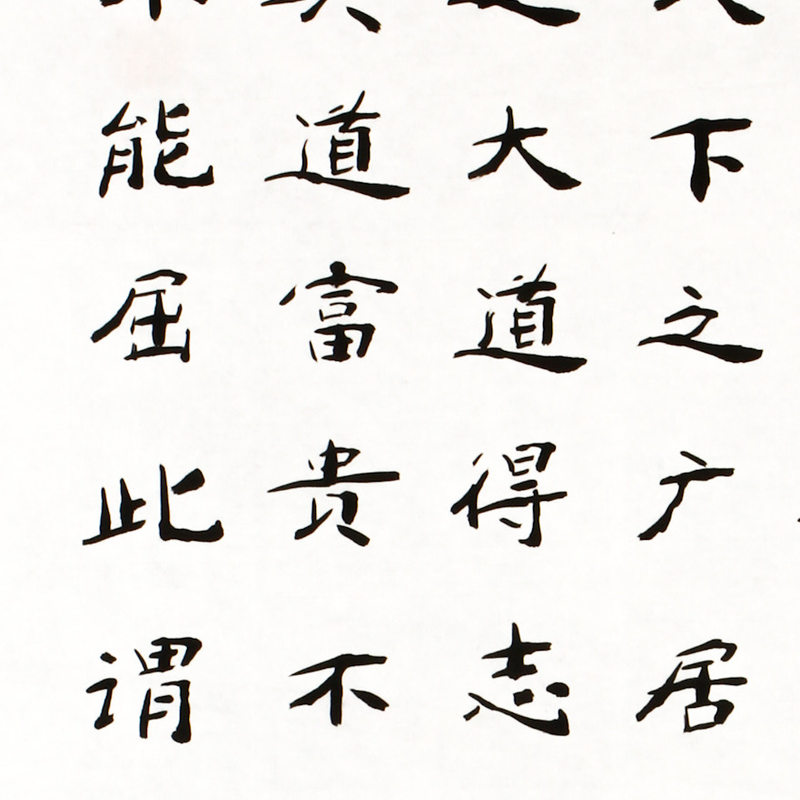 下之广居
大道得志
道富贵不
能屈此谓